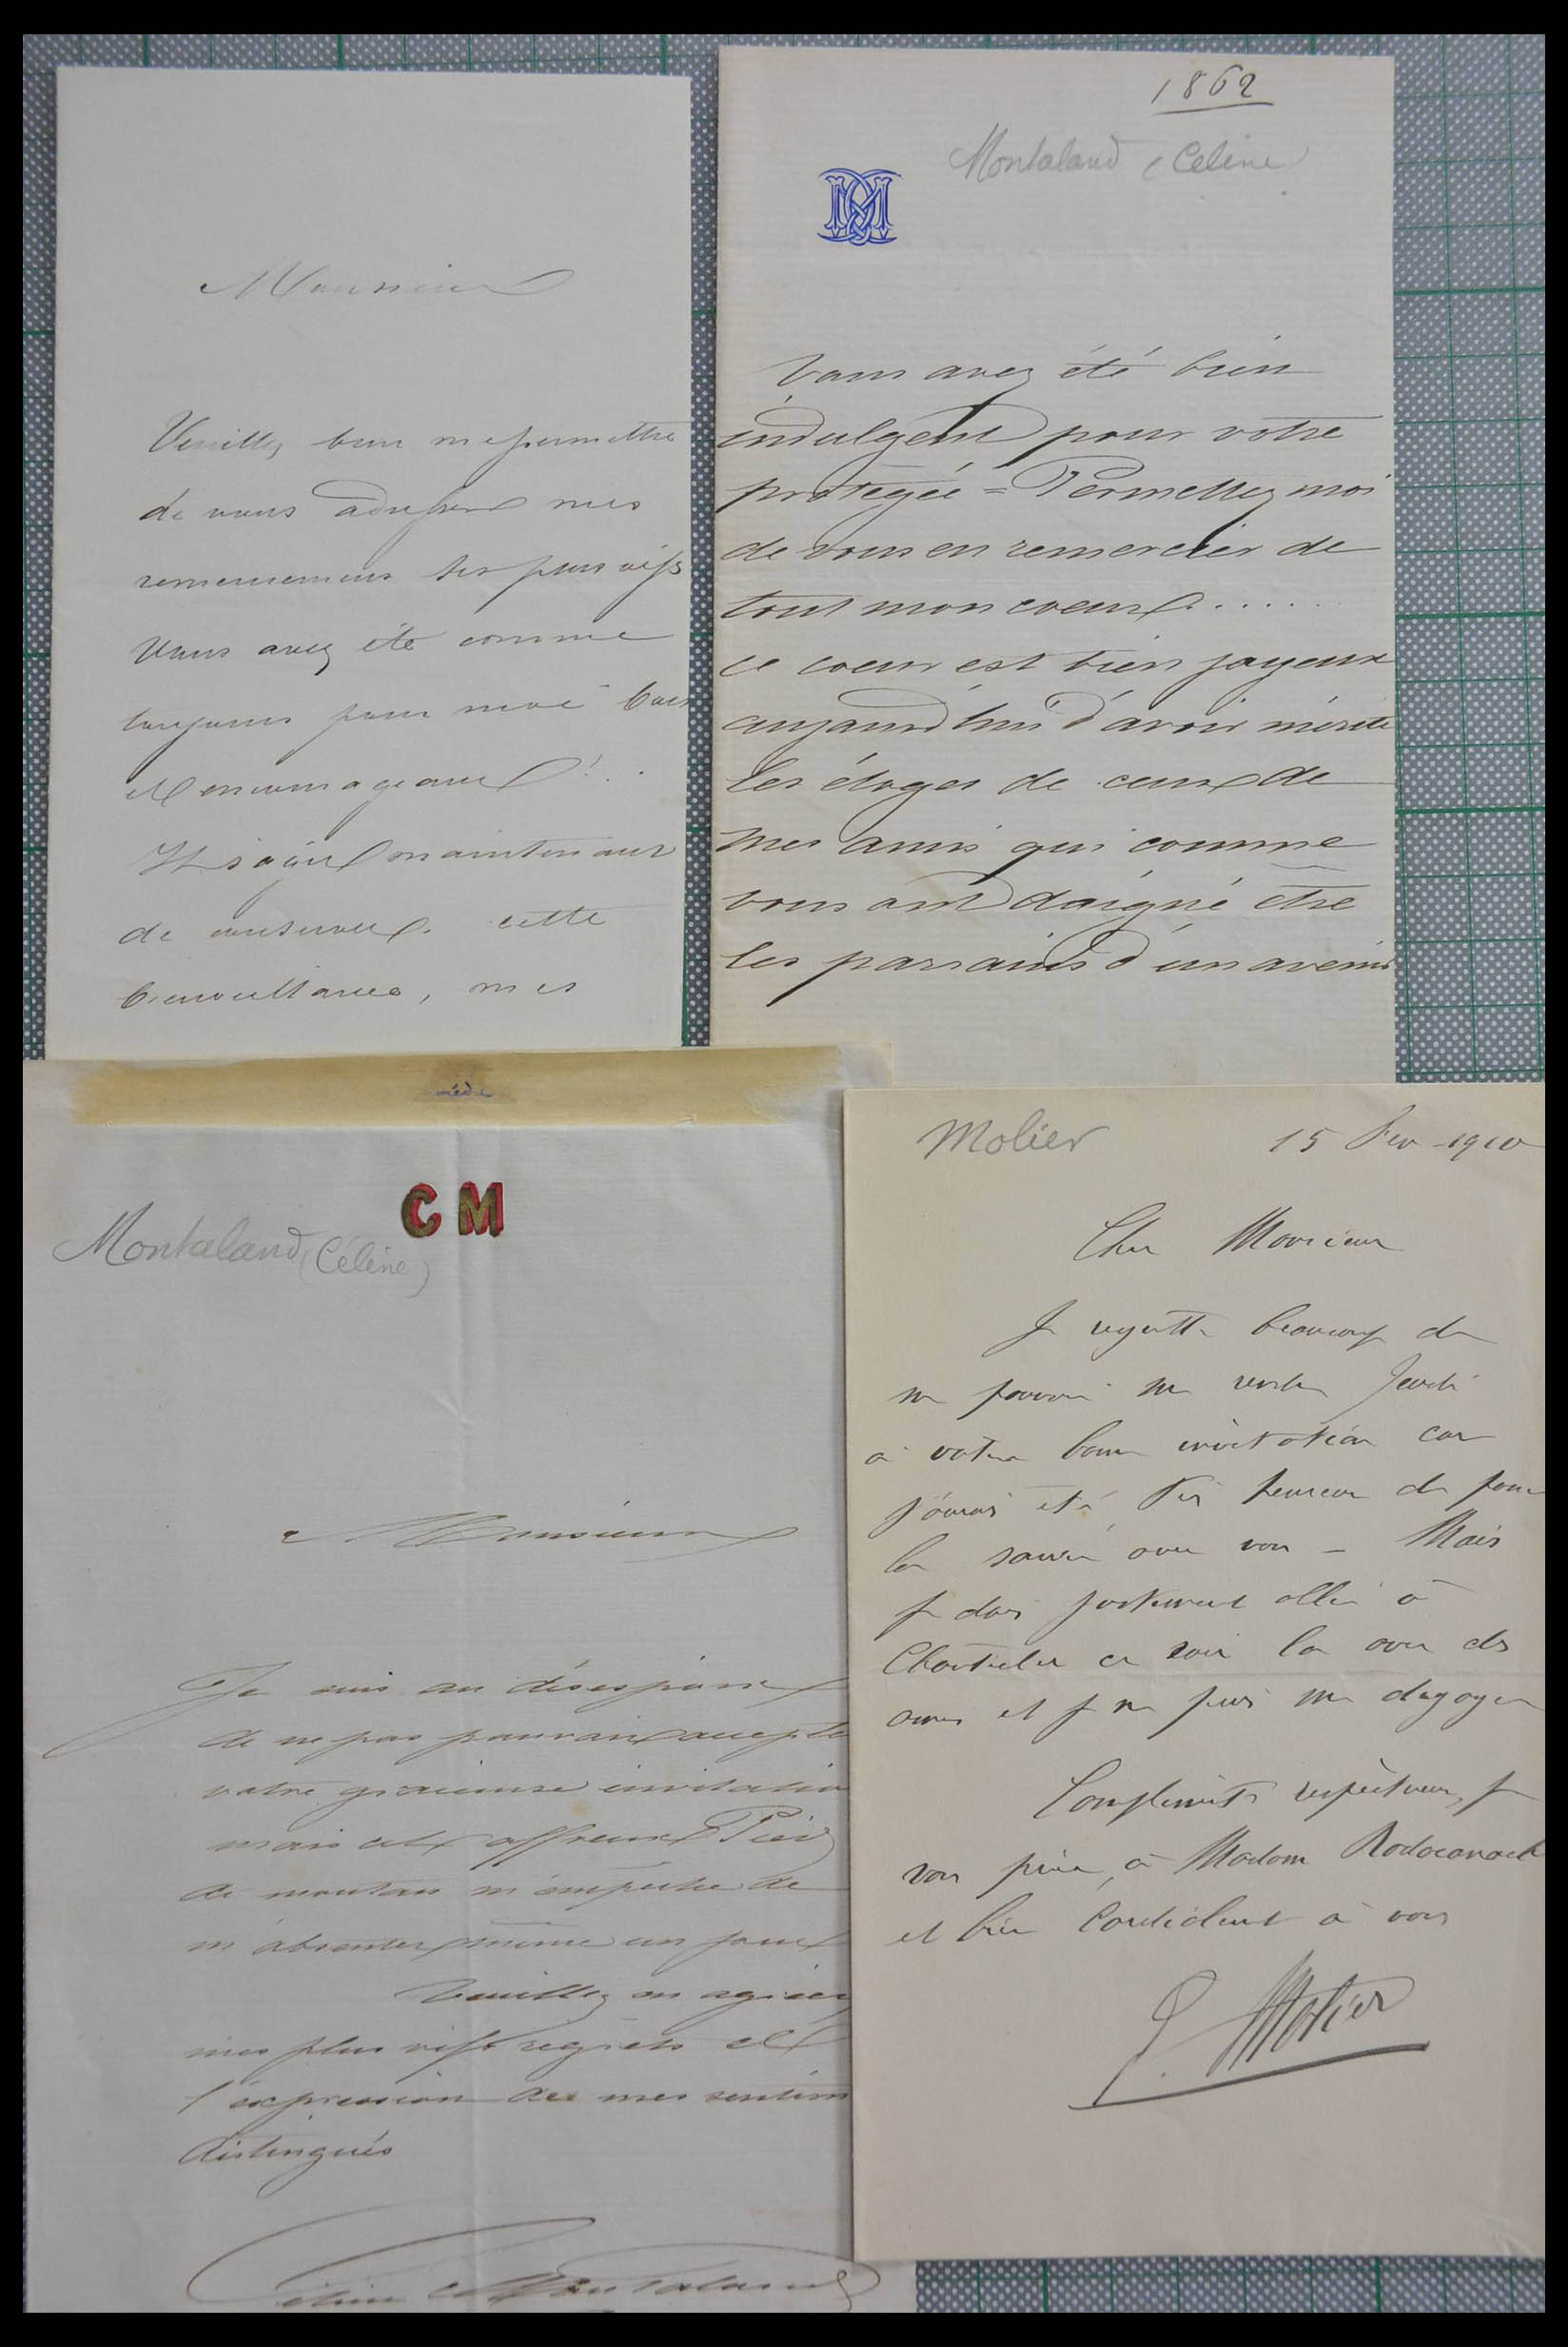 Monsieur
Veuillez bien me permettre
de vous adresser mes
remerciements les plus vifs
Vous avez été comme
toujours pour moi bon
et encourageant !..
maintenant
de conserver cette
bienveillance, mes
1862
Montaland (Celine)
Vous avez été bien
indulgent pour votre
protégée = Permettez moi
de vous en remercier de
tout mon coeur......
ce coeur est bien joyeux
aujourd'hui d'avoir mérité
les éloges de ceux de
mes amis qui comme
vous ont daigné être
les parrains d'un avenir
CM
Montaland (Céline)
Monsieur
Je suis au désespoir
de ne pas pouvoir accepte
votre gracieuse invitatio
mais cet affreux Pied
de mouton m'empêche de
m'absenter même un jour
Veuillez en agréer
mes plus vifs regrets et
l'expression de mes sentim
distingués
Céline Montaland
Molier
15 Fev 1910
Cher Monsieur
Je regrette beaucoup de
ne pouvoir me rendre Jeudi
à votre bonne invitation car
j'aurais été très heureux de passer
la soirée avec vous – Mais
je dois justement aller à
Chantecler ce soir là avec des
amis et je ne puis me dégager
Compliments respectueux, je
vous prie, à Madame Rodocanachi
et bien cordialement à vous
E. Molier